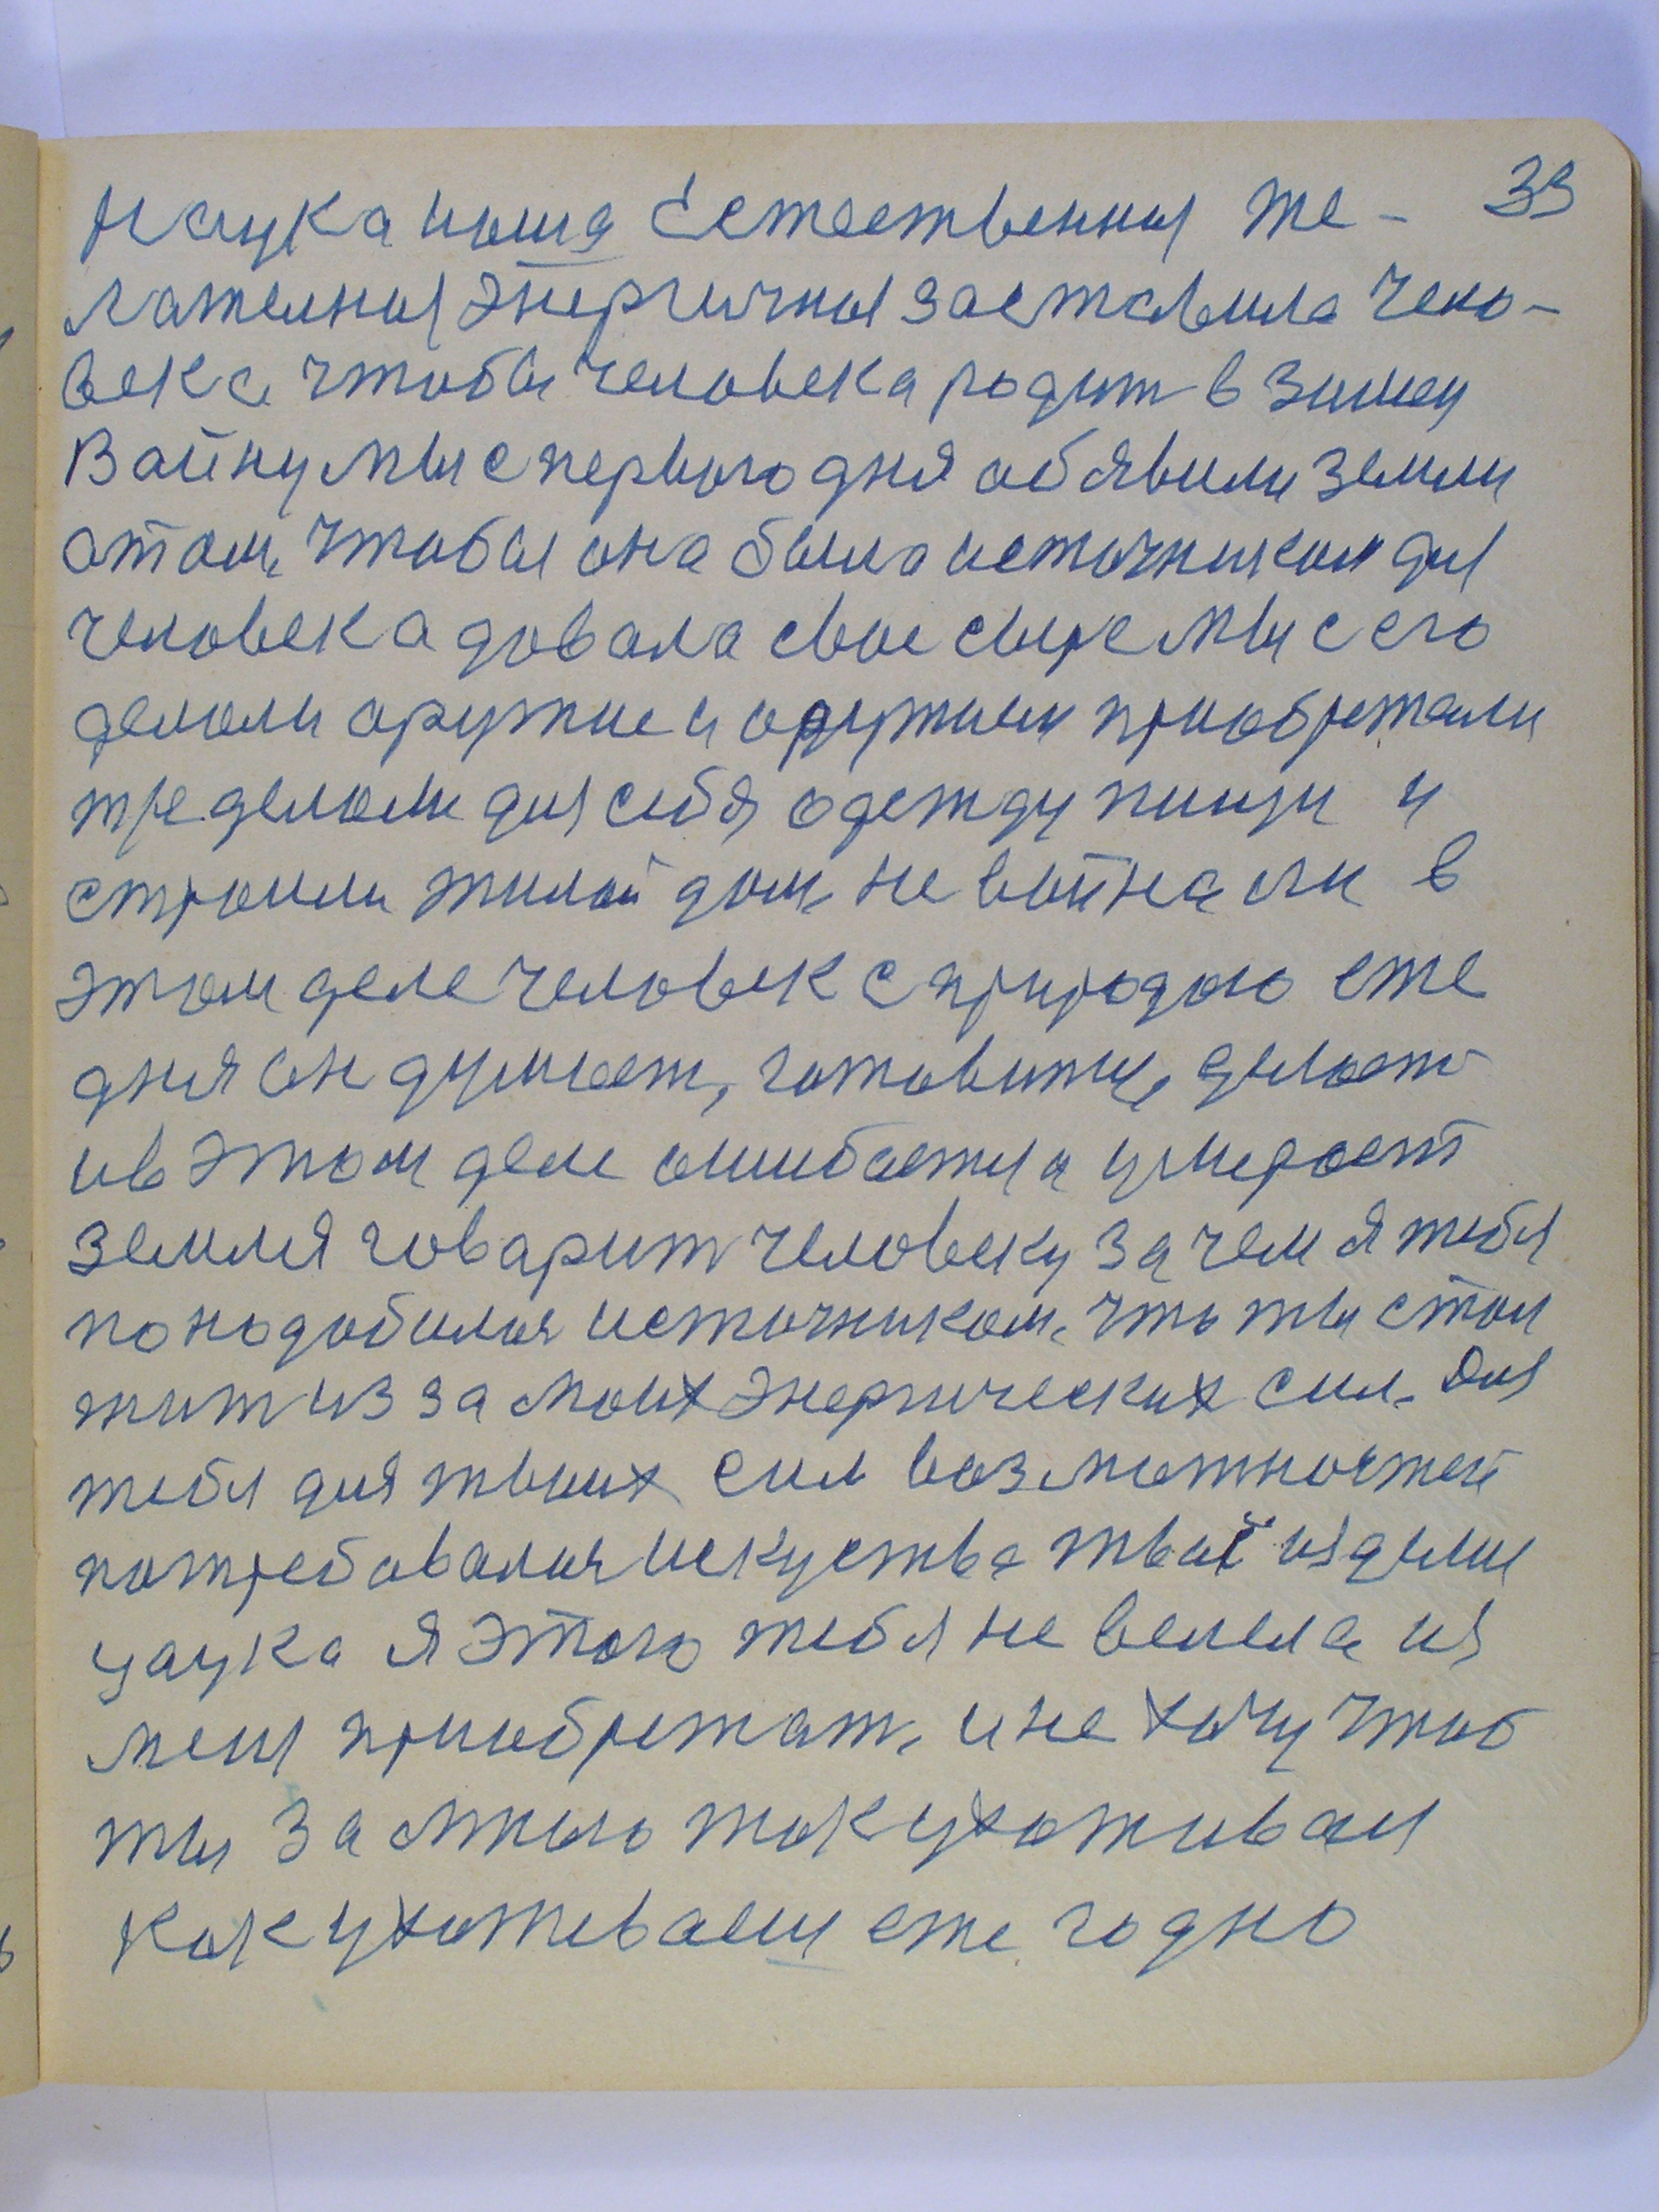 33
Наука наша Естественная же-
лательная Энергичная заставила чело-
века чтобы человека родит в зимы
Войну мы с первого дня обявили земли
отом, чтобы она была источником для
человека довала свое сыре мы с его
делали оружие и оружием приобретали
тределали для себя одежду пищи и
строили жилой дом, не война ли в
этом деле человек с природою еже
дня он думает, готовится, делает
ив этом деле ошибается и умирает
Земля говарит человеку зачем я тебя
понодобилас источником. что ты стал
жит из за моих Энергических сил. Для
тебя для твоих сил возможностей
потребовалас искуства твоё изделие
наука я этого тебя не велела из
меня приобретат, и не хочу чтоб
ты за мною так ухаживал
как ухаживаеш еже годно